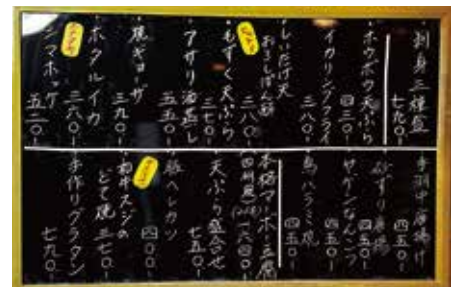 ・刺身三種盛
七九〇-
・ホウボウ天ぷら
四三〇-
・イカリングフライ
三八〇-
・しいたけ天
三八〇-
・もずく天ぷら
三七〇-
・アサリ酒蒸し
五五〇-
・焼ギョーザ
三九〇-
・ホタルイカ
三六〇-
・シマホッケ
五二〇-
手羽中唐揚げ
四五〇-
砂ずり唐揚
四五〇-
ヤゲンなんこつ
四五〇-
鳥ハラミ焼
四五〇-
本格マーボー豆腐
六四〇-
天ぷら盛合せ
七五〇-
豚ヘレカツ
四〇〇-
和牛スジの
どて焼 三七〇-
手作りグラタン
七九〇-